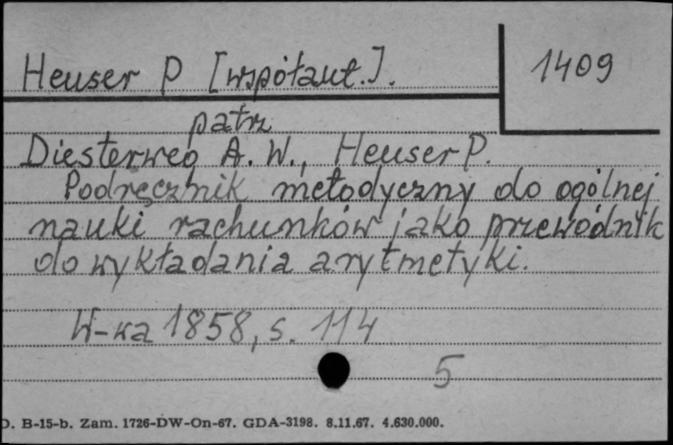 Heuser P [współaut.].
1409
patrz
Diesterweg A. W., Heuser P.
Podręcznik metodyczny do ogólnej
nauki rachunków jako przewodnik
do wykładania arytmetyki.
W-wa 1858, s. 114
5
D. B-15-b. Zam. 1726-DW-On-67. GDA-3198. 8.11.67. 4.630.000.